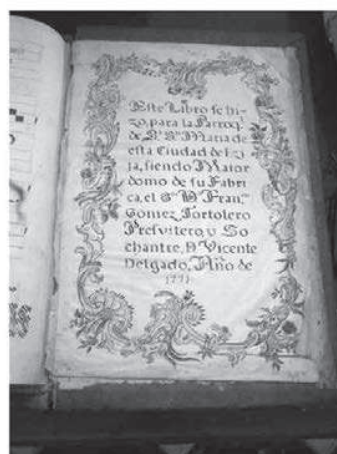 Este Libro se hi-
zo, para la Parroq.l
de S.ta Maria de
esta Ciudad de Ezi
ja, siendo Maior
domo de su Fabri
ca, el S.or D.n Fran.co
Gomez Tortolero
Presvitero, y So
chantre, D. Vicente
Delgado, Año de